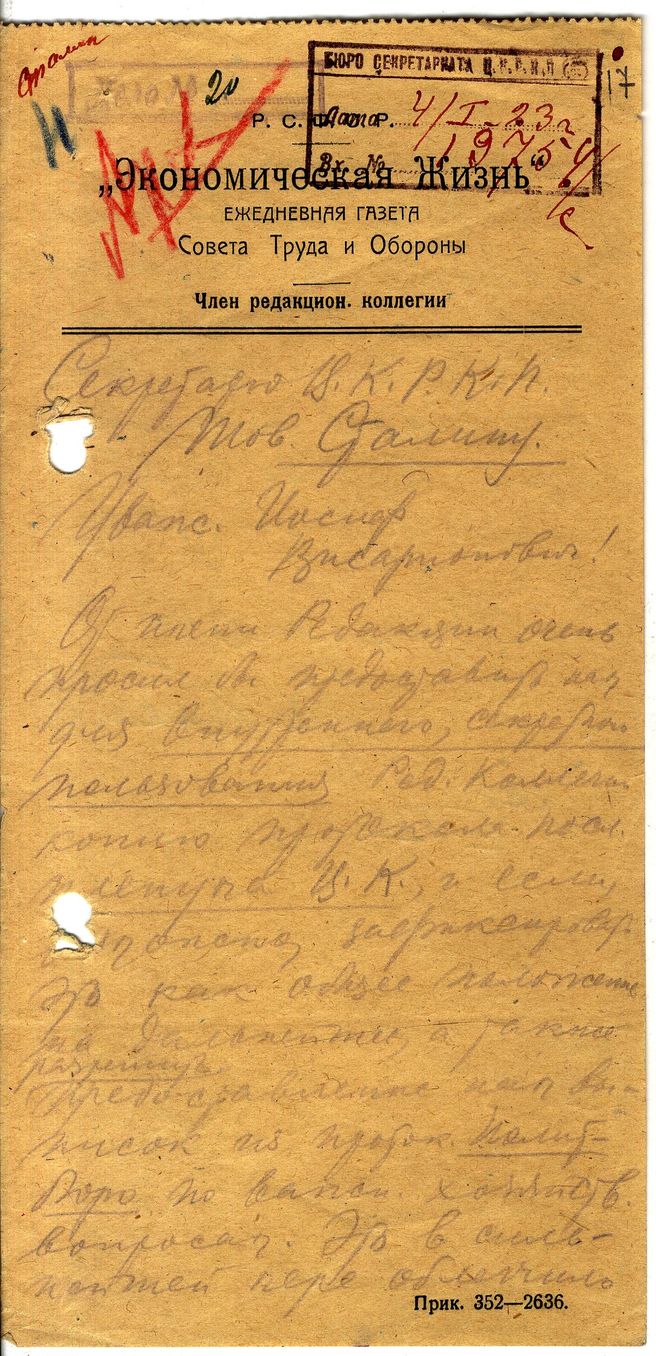 Сталин
20
17
БЮРО СЕКРЕТАРИАТА Ц.К.Р.К.П.
Дата 4/I-23г
Вх. № 1975
Р. С. Ф. С. Р.
„Экономическая Жизнь“
ЕЖЕДНЕВНАЯ ГАЗЕТА
Совета Труда и Обороны
Член редакцион. коллегии
Секретарю Ц.К.Р.К.П.
Тов. Сталину.
Уваж. Иосиф
Висарионович!
От имени Редакции очень
просил бы предоставить нам
для внутреннего, секретн.
пользования Ред. Коллегии
копию протокола посл.
пленума Ц.К., и если
зафиксировать
это как общее положение
на дальнейшее, а также
разрешить
предоставление нам вы-
писок из проток. Полит-
Бюро по важн. хозяйств.
вопросам. Это в силь-
нейшей мере облегчило
Прик. 352—2636.